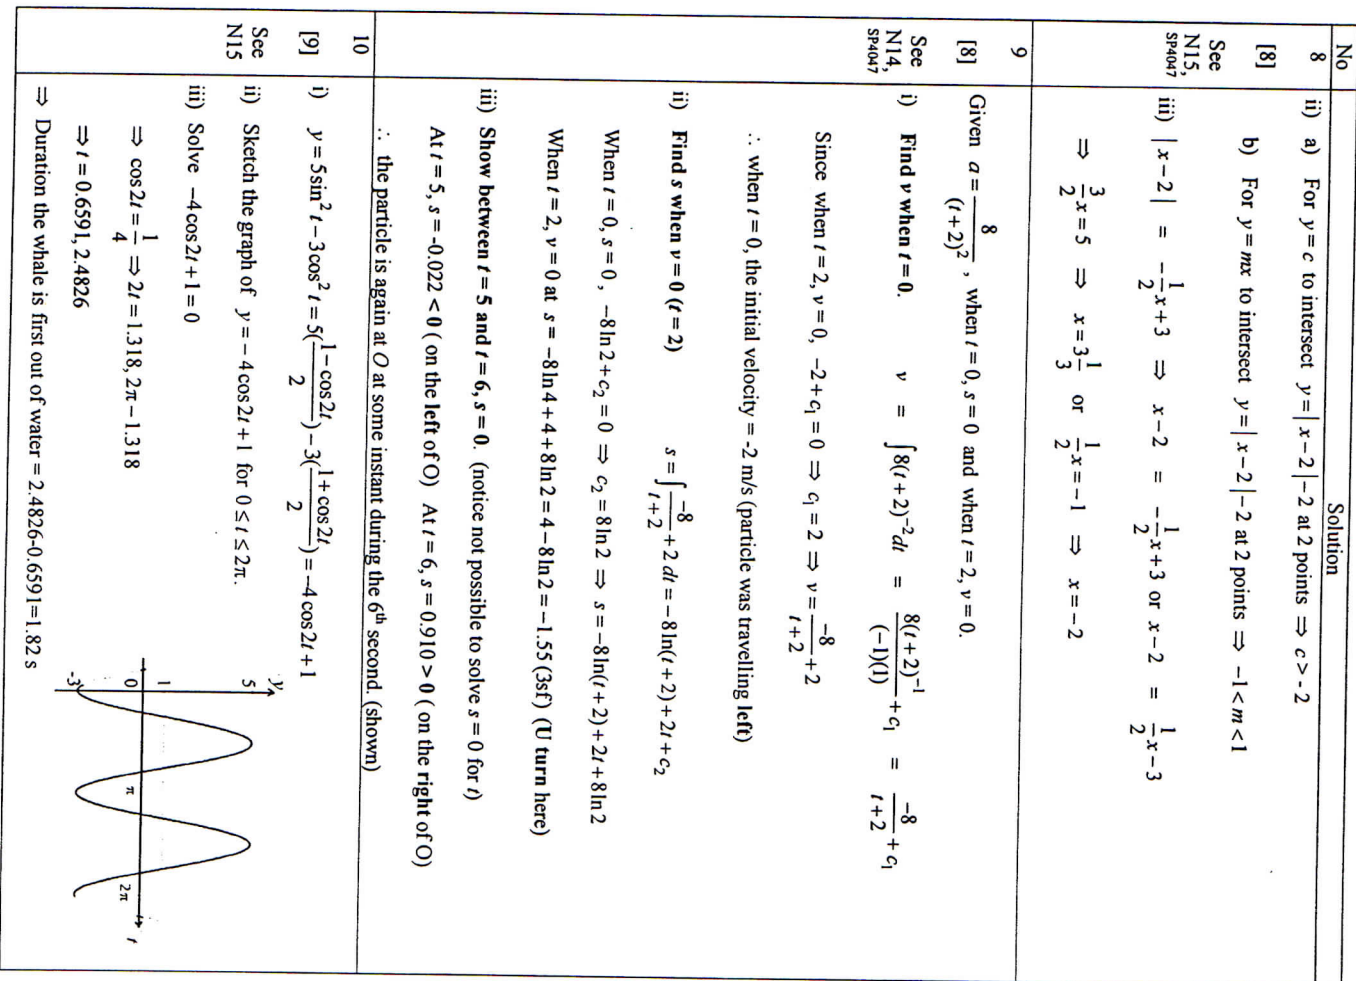 No Solution
8 ii) a) For y = c to intersect y = | x − 2 | − 2 at 2 points ⇒ c > - 2
[8] b) For y = mx to intersect y = | x − 2 | − 2 at 2 points ⇒ −1 < m < 1
See
N15,
SP4047
iii) | x − 2 | = −1/2 x + 3 ⇒ x − 2 = −1/2 x + 3 or x − 2 = 1/2 x − 3
⇒ 3/2 x = 5 ⇒ x = 3 1/3 or 1/2 x = −1 ⇒ x = −2
9 Given a = 8/(t + 2)², when t = 0, s = 0 and when t = 2, v = 0.
[8]
See
N14,
SP4047
i) Find v when t = 0. v = ∫ 8(t + 2)⁻² dt = 8(t + 2)⁻¹/(−1)(1) + c₁ = −8/(t + 2) + c₁
Since when t = 2, v = 0, −2 + c₁ = 0 ⇒ c₁ = 2 ⇒ v = −8/(t + 2) + 2
∴ when t = 0, the initial velocity = -2 m/s (particle was travelling left)
ii) Find s when v = 0 (t = 2) s = ∫ −8/(t + 2) + 2 dt = −8 ln(t + 2) + 2t + c₂
When t = 0, s = 0 , −8 ln 2 + c₂ = 0 ⇒ c₂ = 8 ln 2 ⇒ s = −8 ln(t + 2) + 2t + 8 ln 2
When t = 2, v = 0 at s = −8 ln 4 + 4 + 8 ln 2 = 4 − 8 ln 2 = −1.55 (3sf) (U turn here)
iii) Show between t = 5 and t = 6, s = 0. (notice not possible to solve s = 0 for t)
At t = 5, s = -0.022 < 0 ( on the left of O) At t = 6, s = 0.910 > 0 ( on the right of O)
∴ the particle is again at O at some instant during the 6th second. (shown)
10
[9]
See
N15
i) y = 5 sin² t − 3 cos² t = 5((1 − cos 2t)/2) − 3((1 + cos 2t)/2) = −4 cos 2t + 1
ii) Sketch the graph of y = − 4 cos 2t + 1 for 0 ≤ t ≤ 2π.
iii) Solve −4 cos 2t + 1 = 0
⇒ cos 2t = 1/4 ⇒ 2t = 1.318, 2π − 1.318
⇒ t = 0.6591, 2.4826
⇒ Duration the whale is first out of water = 2.4826-0.6591=1.82 s
y
5
1
0
-3
π
2π
t